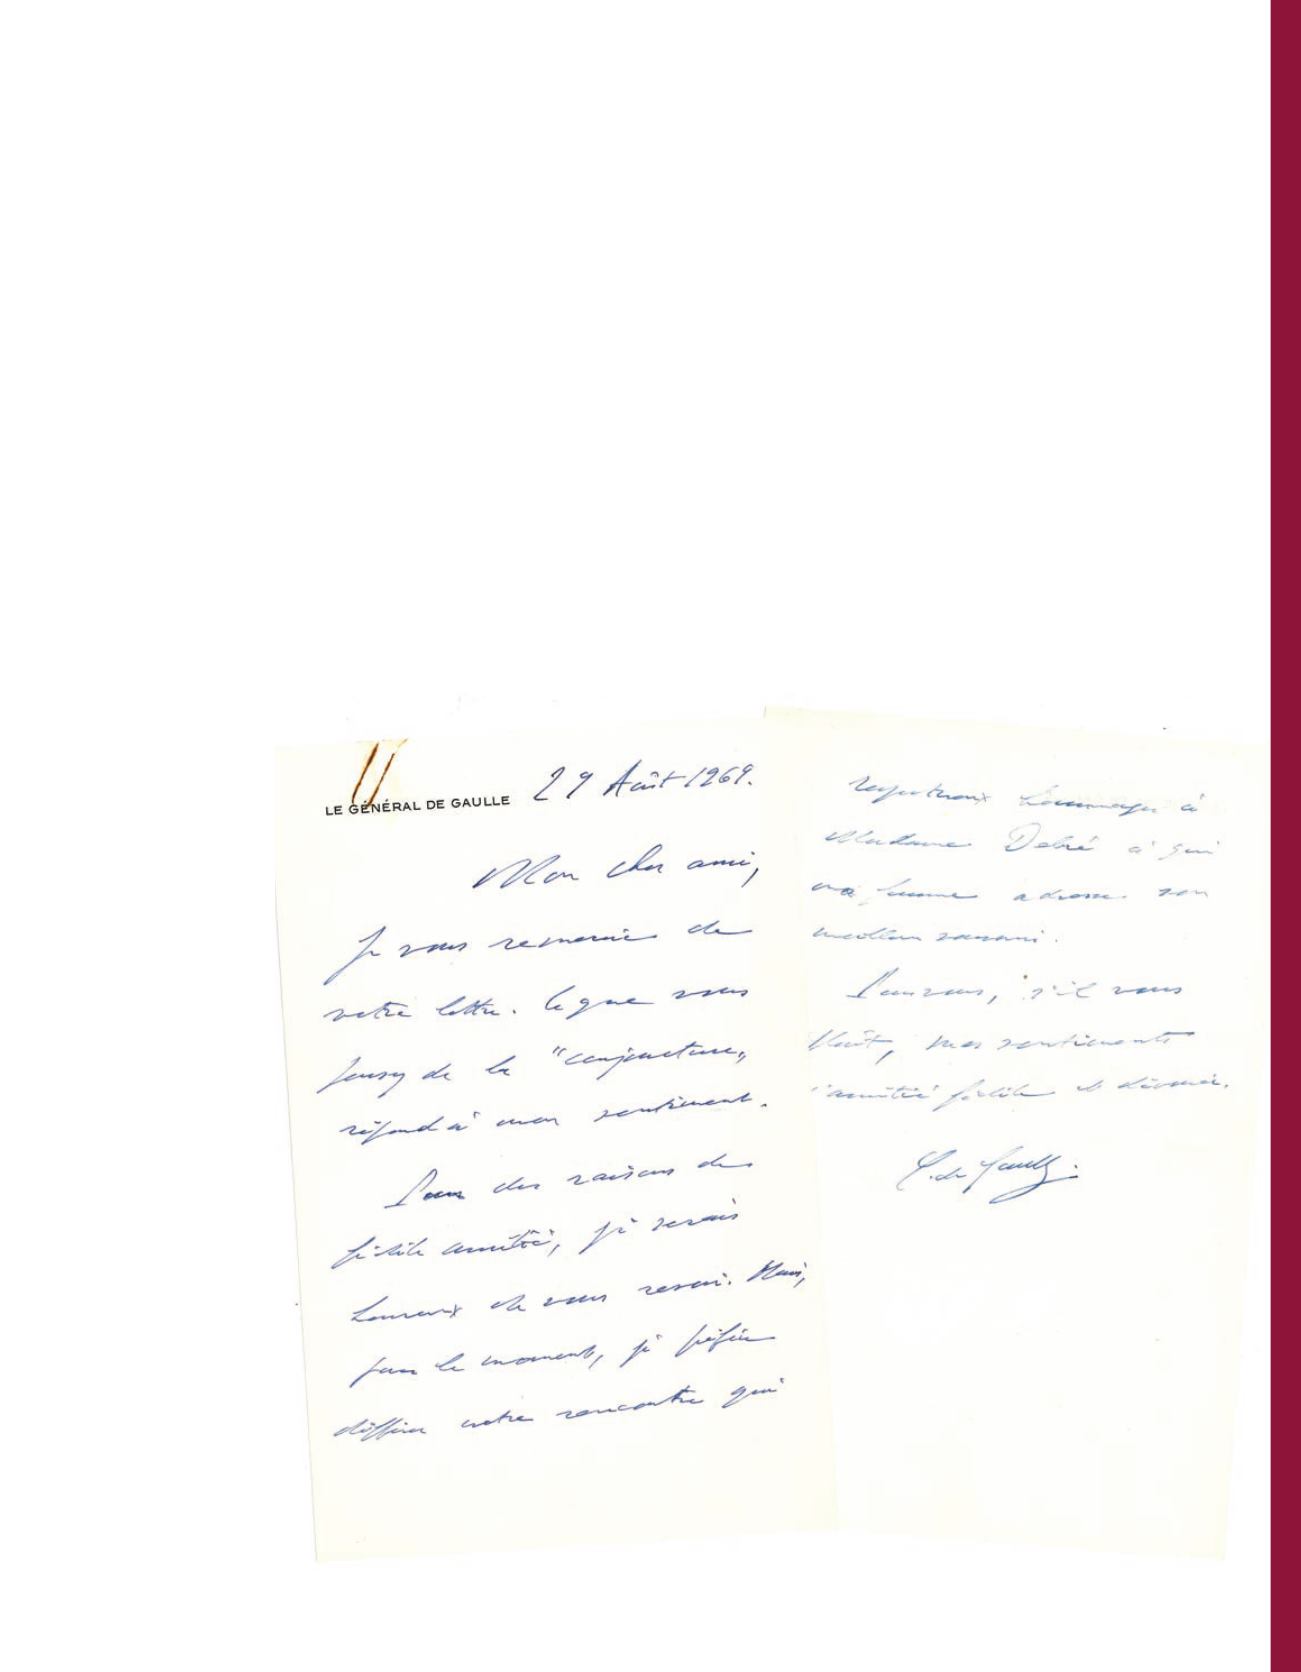 LE GÉNÉRAL DE GAULLE
29 Août 1969.
Mon cher ami,
Je vous remercie de
votre lettre. Ce que vous
pensez de la "conjoncture„
répond à mon sentiment.
Pour des raisons de
fidèle amitié, je serais
heureux de vous revoir. Mais,
pour le moment, je préfère
différer notre rencontre qui
respectueux hommages à
Madame Debré à qui
ma femme adresse son
meilleur souvenir.
s'il vous
plaît, mes sentiments
d'amitié fidèle et dévouée.
C. de Gaulle.